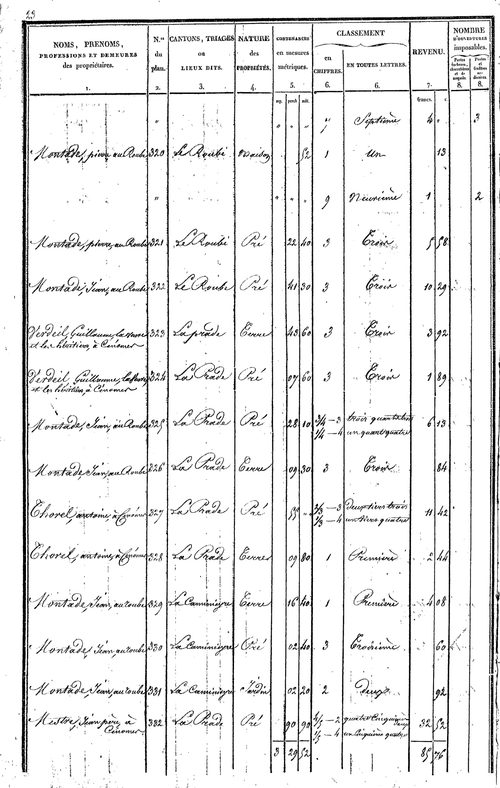 29
NOMS, PRENOMS, PROFESSIONS ET DEMEURES des propriétaires. 1.
N.os du plan. 2.
CANTONS, TRIAGES ou LIEUX DITS. 3.
NATURE des PROPRIÉTÉS. 4.
CONTENANCES en mesures métriques. 5.
CLASSEMENT
en CHIFFRES. 6.
EN TOUTES LETTRES. 6.
REVENU. 7.
NOMBRE D'OUVERTURES imposables.
8. 8.
francs. c.
" " " " 7 Septième 4 " 3
Montade, pierre, au Roube 320 Le Roubé maison 52 1 un 13
" " " " 9 Neuvième 1 2
Montade, pierre, au Roube 321 Le Roubé Pré 22 40 3 Trois 5 58
Montade, Jean, au Roube 322 Le Roube Pré 41 30 3 Trois 10 29
Verdeil, Guillaume, 323 La prade Terre 43 60 3 Trois 3 92
et les héritiers, à
Verdeil, Guillaume, 324 La Prade Pré 07 60 3 Trois 1 89
et les héritiers, à
Montade, Jean, au Roube 325 La Prade Pré 28 10 3/4 - 3 trois quarts trois 6 13
1/4 - 4 un quart quatre
Montade, Jean, au Roube 326 La Prade Terre 09 30 3 Trois 84
Thorel, antoine, à 327 La Prade Pré 55 " 2/3 - 3 deux tiers trois 11 42
1/3 - 4 un tiers quatre
Thorel, antoine, à 328 La Prade Terre 09 80 1 Première 2 44
Montade, Jean, au roube 329 La Caminieyre Terre 16 40 1 Première 4 08
Montade, Jean, au roube 330 La Caminieyre Pré 02 40 3 Troisième 60
Montade, Jean, au roube 331 La Caminieyre Jardin 02 20 2 Deux 92
Mestre, Jean père, à 332 La Prade Pré 90 90 4/5 - 2 quatre cinquièmes deux 32 52
1/5 - 4 un cinquième quatre
3 29 52 85 76